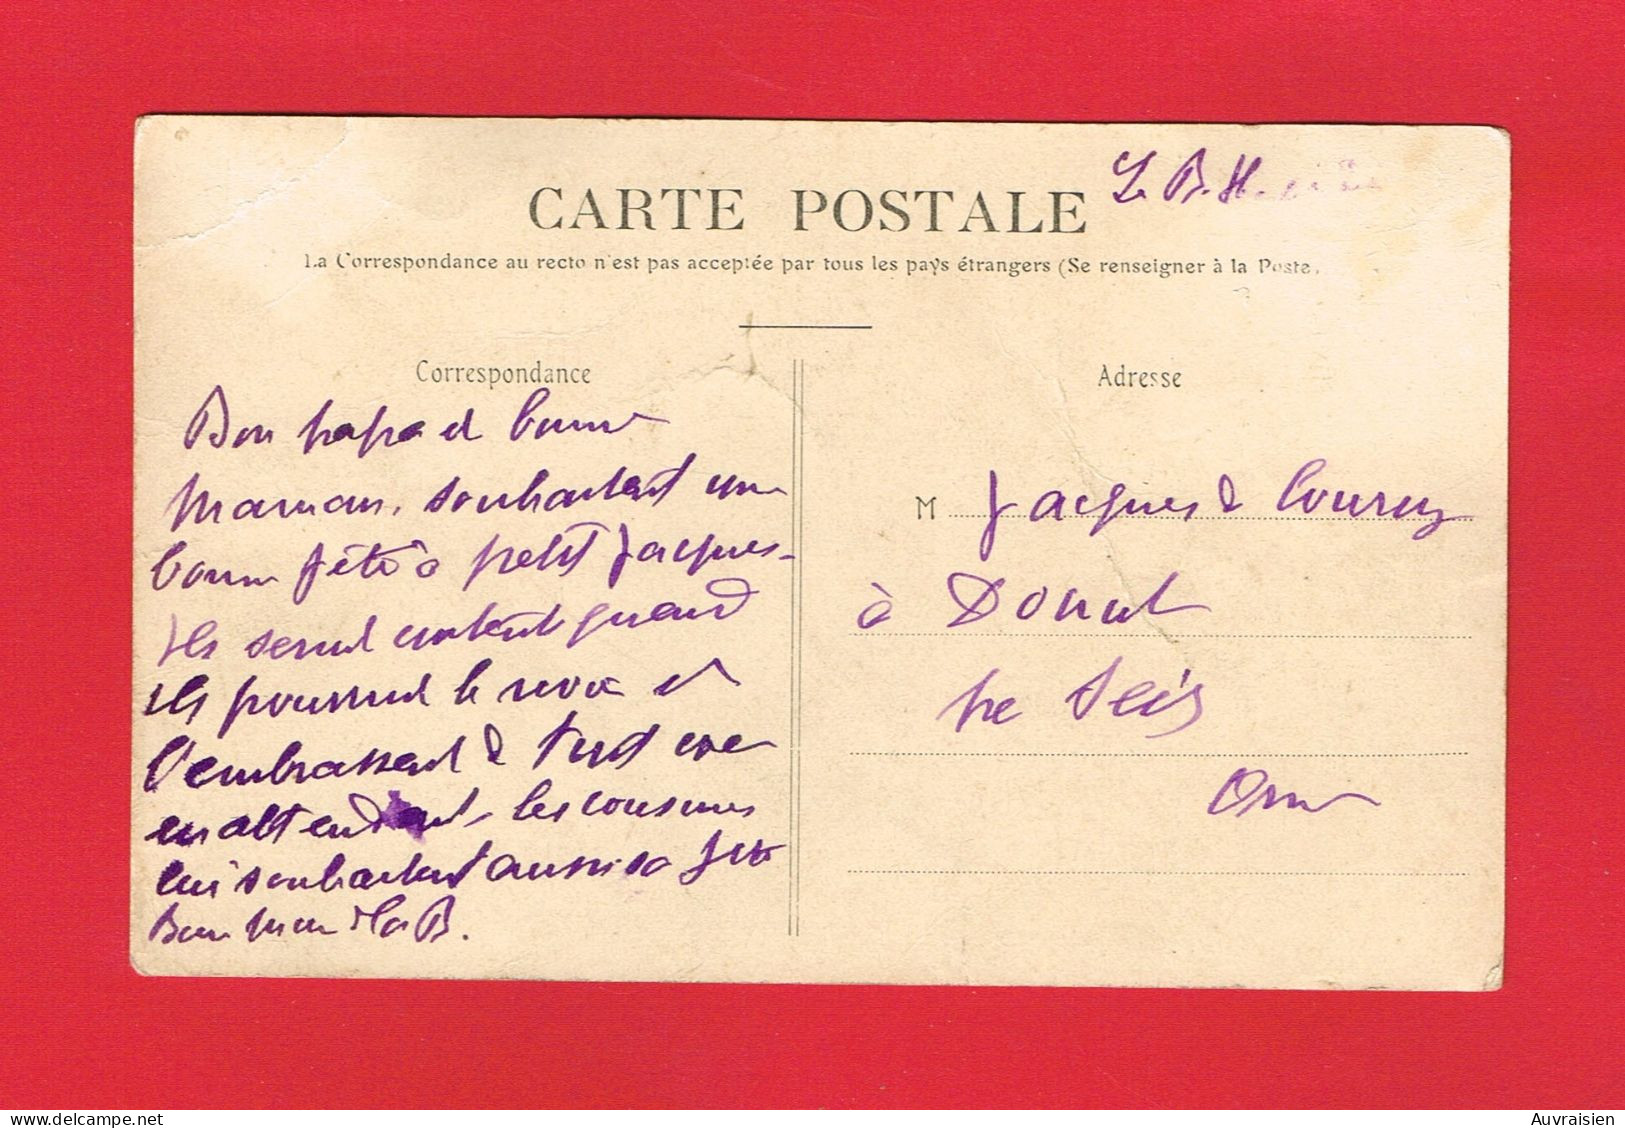 CARTE POSTALE
La Correspondance au recto n'est pas acceptée par tous les pays étrangers (Se renseigner à la Poste,
Correspondance
Bon papa et bonne
maman, souhaitent une
bonne fête à petit Jacques
Ils seront contents quand
ils pourront le revoir et
l'embrasser
en attendant les cousines
lui souhaitent aussi sa fête
Bonne
Adresse
M Jacques de Courcy
à
Orne
Auvraisien